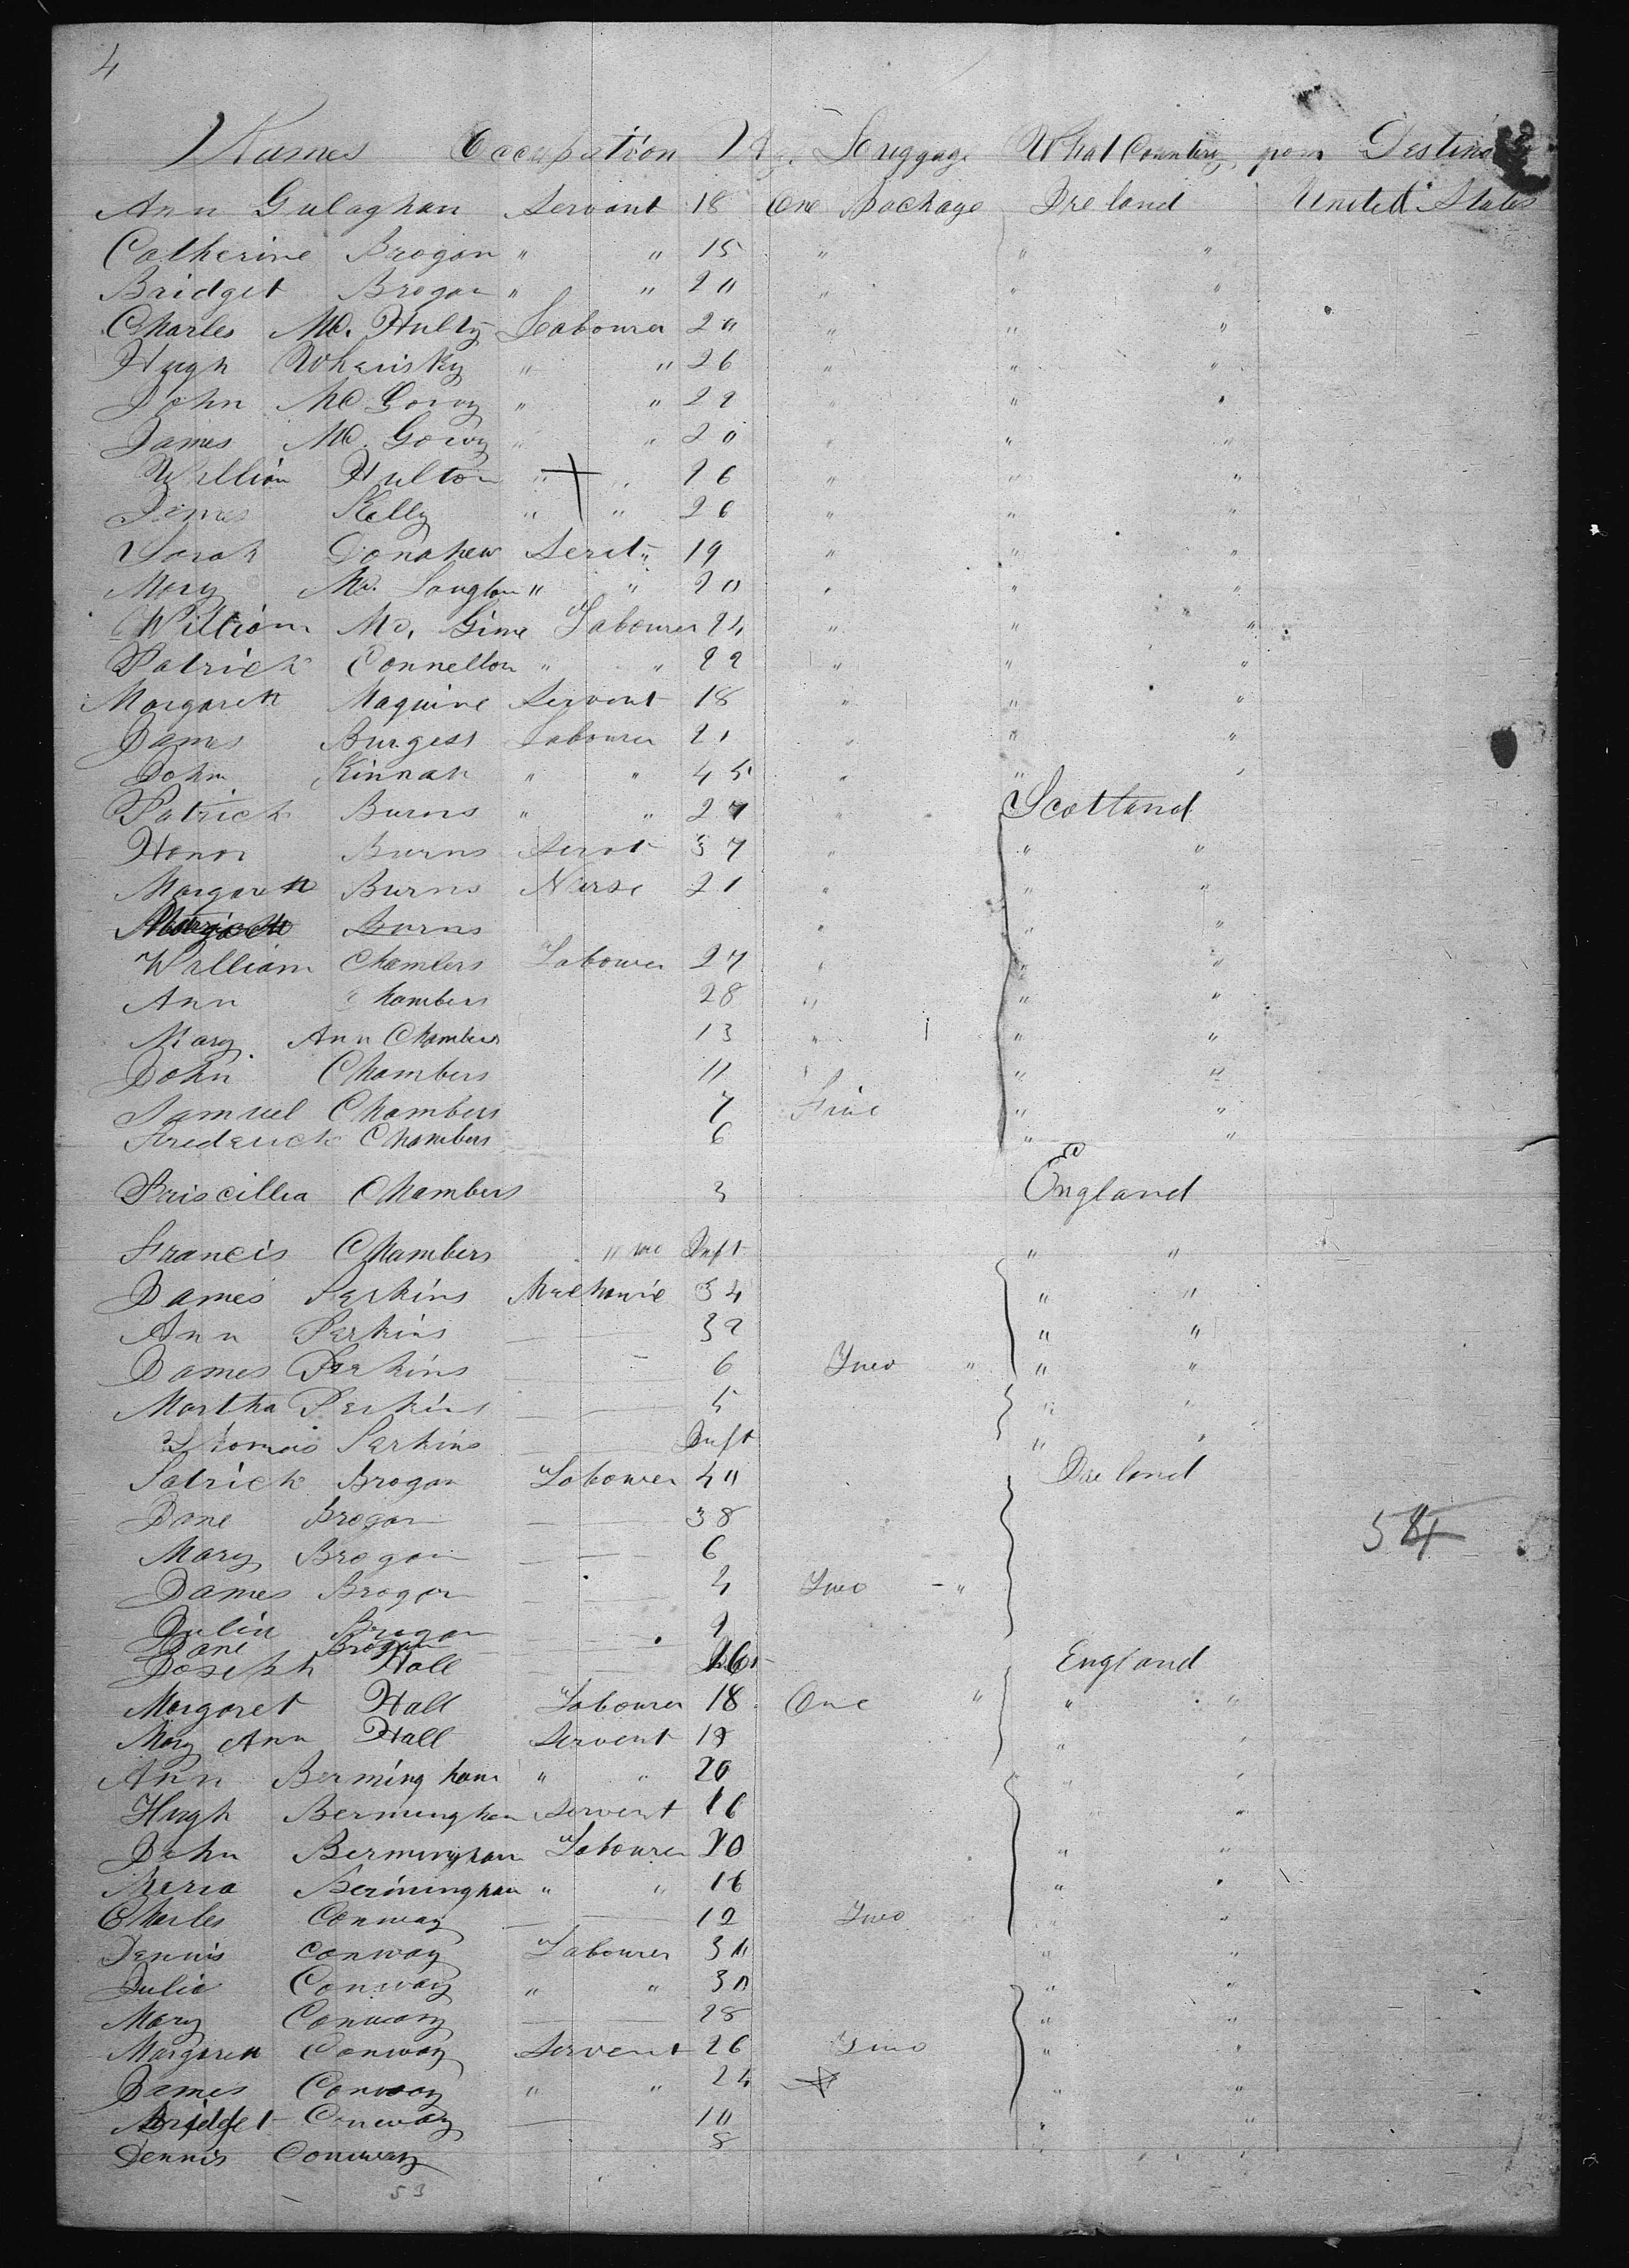 4
Names Occupation Age Luggage What Country from Destina
Ann Gulaghan Servant 18 One Package Ireland United States
Catherine Brogan " " 15 " " "
Bridget Brogan " " 20 " " "
Charles Mc. Hulty Labourer 20 " " "
Hugh Wherisky " " 26 " " "
John Mc Govoy " " 22 " "
James Mc. Govoy " " 20 " " "
William Hulton " " 26 " " "
James Kelly " " 26 " " "
Sarah Donahew Servt " 19 " " "
Mary Mc. Langlon " " 20 " " "
William Mc. Gine Labourer 24 " " "
Patrick Connellon " " 22 " " "
Margarett Maguire Servant 18 " " "
James Burgess Labourer 21 " " "
John Kinnah " " 45 " " "
Patrick Burns " " 27 " Scotland
Honor Burns Servt 37 " " "
Margarett Burns Nurse 21 " " "
Burns " " "
William Chambers Labourer 27 " " "
Ann Chambers 28 " " "
Mary Ann Chambers 13 " " "
John Chambers 11 " " "
Samuel Chambers 7 Five " "
Frederick Chambers 6 " "
Priscillia Chambers 3 England
Francis Chambers Inft " "
James Perkins Mechanic 34 " "
Ann Perkins 32 " "
James Perkins 6 Two " " "
Martha Perkins 5 " "
Thomas Perkins Inft " "
Patrick Brogan Labourer 40 Ireland
Jane Brogan 38
54
Mary Brogan 6
James Brogan 4 Two "
Julia Brogan 2
Jane Brogan
Joseph Hall England
Margaret Hall Labourer 18 One " " "
Mary Ann Hall Servent 18 " "
Ann Bermingham " " 20 " "
Hugh Bermingham Servent 16 "
John Bermingham Labourer 20 " "
Maria Bermingham " " 16 " "
Charles Conway 12 Two " "
Dennis Conway Labourer 30 " "
Julia Conway " " 30 " "
Mary Conway 28 " "
Margarett Conway Servent 26 Two " "
James Conway " " 24 " "
Bridget Conway 10 " "
Dennis Conway 8
53